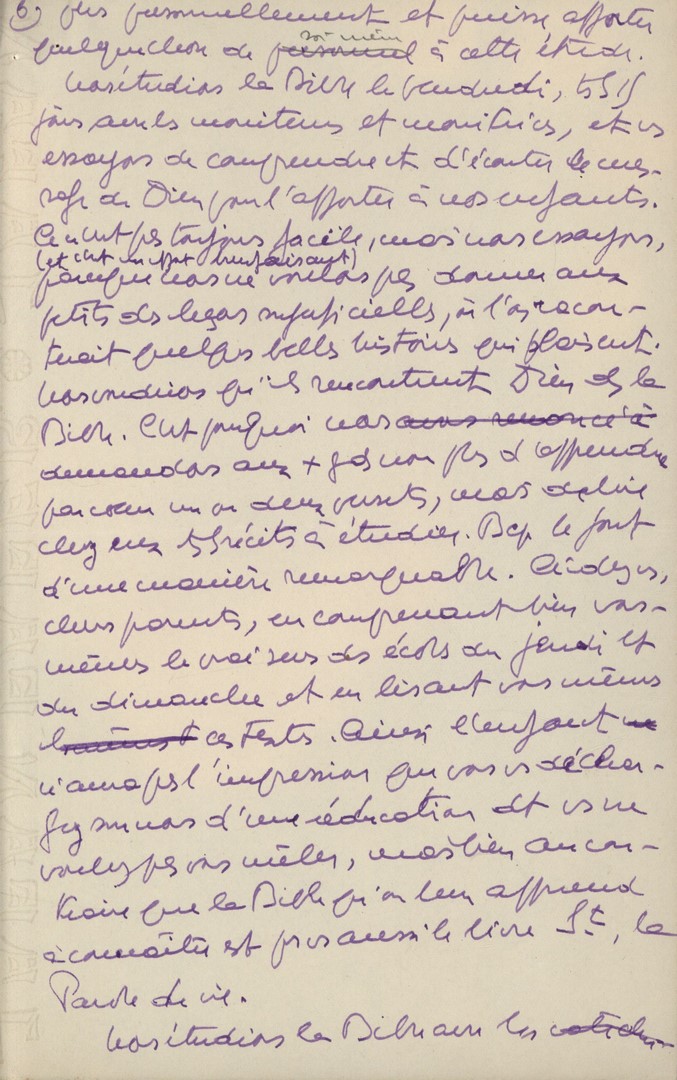 6) plus personnellement et puisse apporter
quelque chose de personnel soi-même à cette étude.
Nous étudions la Bible le vendredi, ts les 15
jours avec les moniteurs et monitrices, et ns
essayons de comprendre et d'écouter le mes-
sage de Dieu pour l'apporter à nos enfants.
Ce n'est pas toujours facile, mais nous essayons,
(et c'est un effort bienfaisant)
parce que nous ne voulons pas donner aux
petits des leçons superficielles, où l'on racon-
terait quelques belles histoires qui plaisent.
Nous voudrions qu'ils rencontrent Dieu ds la
Bible. C'est pourquoi nous avons renoncé à
demandons aux + gds non plus d'apprendre
par cœur un ou deux versets, mais de lire
chez eux ts les récits à étudier. Bcp le font
d'une manière remarquable. Aidez-les,
chers parents, en comprenant bien vous-
mêmes le vrai sens des écoles du jeudi et
du dimanche et en lisant vous mêmes
ces textes. Ainsi l'enfant ne
n'aura pas l'impression que vous vs déchar-
gez sur nous d'une éducation dt vs ne
voulez pas vous mêler, mais bien au con-
traire que la Bible qu'on leur apprend
à connaître est pr vs aussi le livre St, la
Parole de vie.
Nous étudions la Bible avec les catéchu-